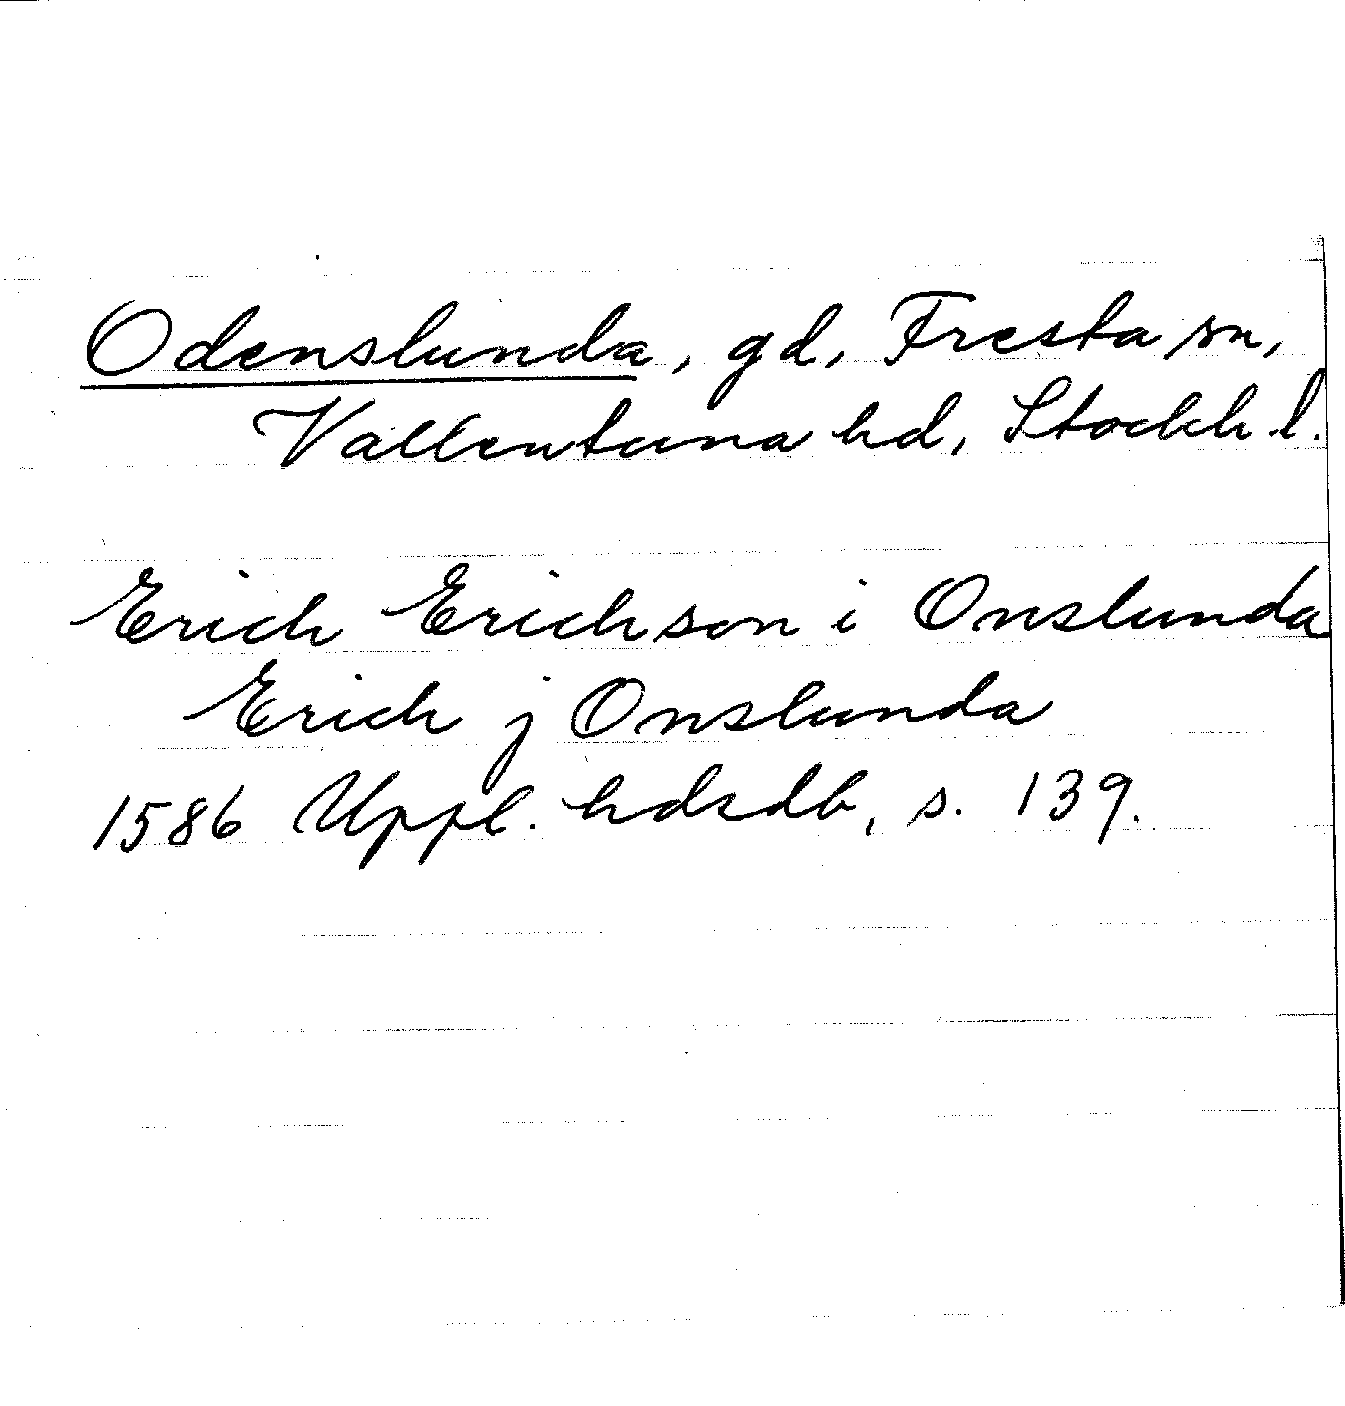 Odenslunda, gd, Fresta sn,
Vallentuna hd, Stockh. l.
Erich Erichson i Onslunda
Erich j Onslunda
1586 Uppl. hdsdb, s. 139.